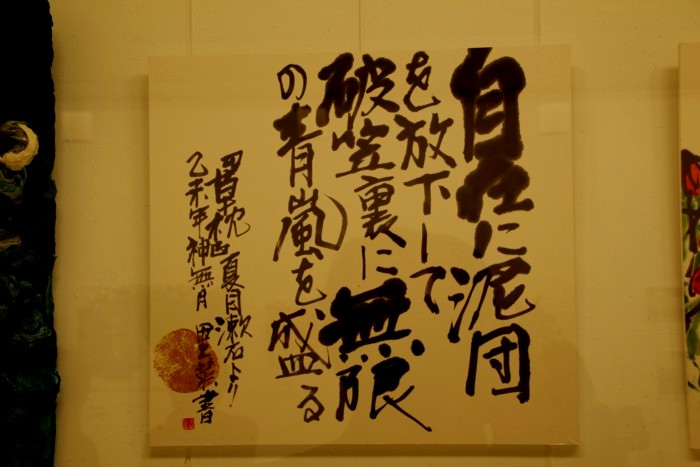 自在に泥団
を放下して
破笠裏に無限
の青嵐を盛る
草枕 夏目漱石より
乙未年神無月 書